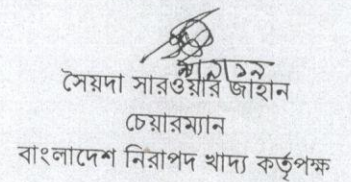 সৈয়দা সারওয়ার জাহান
চেয়ারম্যান
বাংলাদেশ নিরাপদ খাদ্য কর্তৃপক্ষ